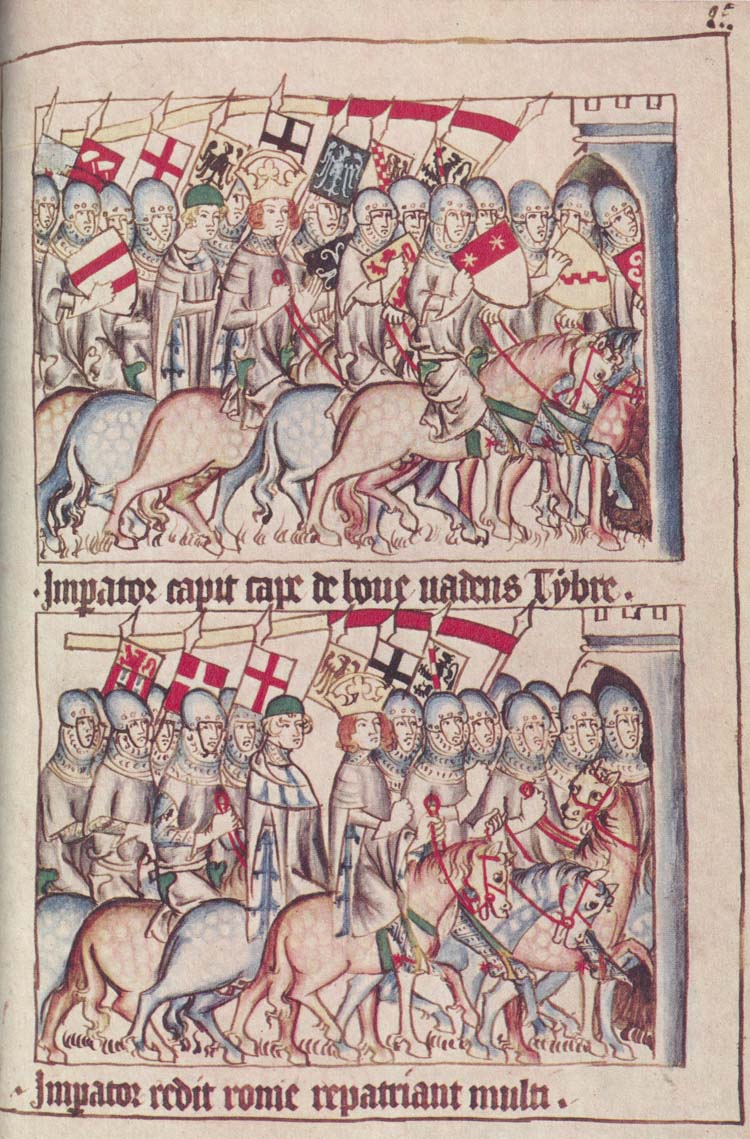 ·Imꝑator capit cape de boue uadens Tÿbre.
·Imꝑator redit rome repatriant multi.